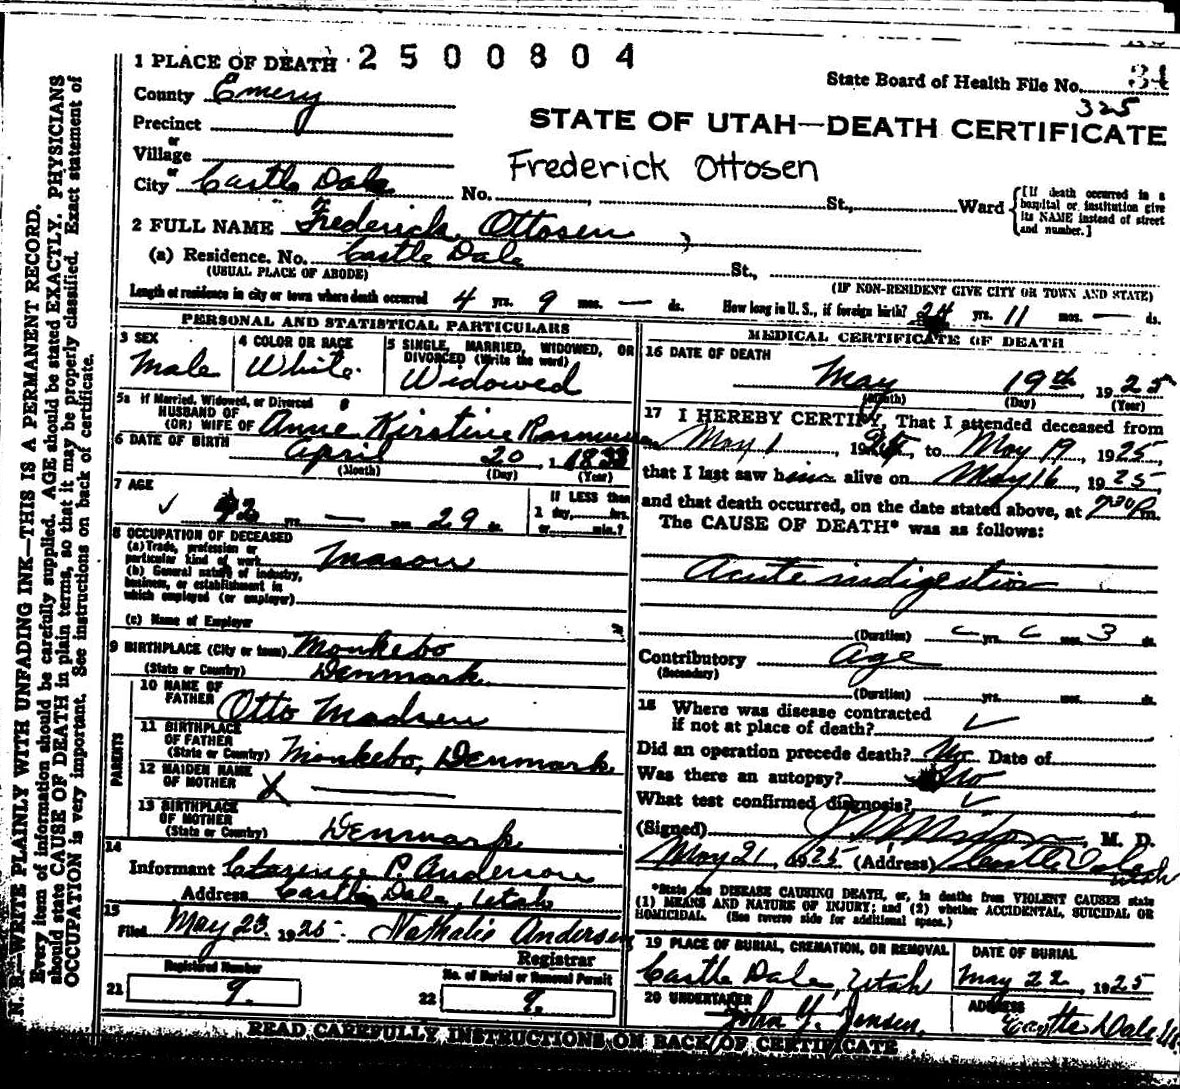 N. B.—WRITE PLAINLY WITH UNFADING INK—THIS IS A PERMANENT RECORD.
Every item of information should be carefully supplied. AGE should be stated EXACTLY. PHYSICIANS
should state CAUSE OF DEATH in plain terms, so that it may be properly classified. Exact statement of
OCCUPATION is very important. See instructions on back of certificate.
1 PLACE OF DEATH 2500804
State Board of Health File No. 34
325
County Emery
STATE OF UTAH—DEATH CERTIFICATE
Precinct
or
Village
Frederick Ottosen
or
City Castle Dale No. St., Ward
[If death occurred in a
hospital or institution give
its NAME instead of street
and number.]
2 FULL NAME Frederick Ottosen
(a) Residence. No. Castle Dale St.,
(USUAL PLACE OF ABODE)
(IF NON-RESIDENT GIVE CITY OR TOWN AND STATE)
Length of residence in city or town where death occurred 4 yrs. 9 mos. — ds. How long in U. S., if foreign birth? 24 yrs. 11 mos. — ds.
PERSONAL AND STATISTICAL PARTICULARS
3 SEX
Male
4 COLOR OR RACE
White
5 SINGLE, MARRIED, WIDOWED, OR
DIVORCED (Write the word)
Widowed
5a If Married, Widowed, or Divorced
HUSBAND OF
(OR) WIFE OF Anne Kirstine
6 DATE OF BIRTH April 20, 1
(Month) (Day) (Year)
7 AGE
yrs. — mos. 29
If LESS than
1 day, hrs.
or min.?
8 OCCUPATION OF DECEASED
(a) Trade, profession or
particular kind of work Mason
(b) General nature of industry,
business, or establishment in
which employed (or employer)
(c) Name of Employer
9 BIRTHPLACE (City or town) Monkebo
(State or Country) Denmark
PARENTS
10 NAME OF
FATHER Otto Madsen
11 BIRTHPLACE
OF FATHER
(State or Country) Monkebo, Denmark
12 MAIDEN NAME
OF MOTHER X
13 BIRTHPLACE
OF MOTHER
(State or Country) Denmark
14
Informant Clarence P. Anderson
Address Castle Dale, Utah
15
Filed May 23 1925 Nathalie Andersen
Registrar
Registered Number
21 9.
No. of Burial or Removal Permit
22 9.
MEDICAL CERTIFICATE OF DEATH
16 DATE OF DEATH
May 19th 1925
(Month) (Day) (Year)
17 I HEREBY CERTIFY, That I attended deceased from
May 1 19 , to May 19, 1925,
that I last saw him alive on May 16, 1925,
and that death occurred, on the date stated above, at 7:30 P m.
The CAUSE OF DEATH* was as follows:
Acute indigestion
(Duration) yrs. mos. 3 ds.
Contributory Age
(Secondary)
(Duration) yrs. mos. ds.
18 Where was disease contracted
if not at place of death? ✓
Did an operation precede death? No Date of
Was there an autopsy? No
What test confirmed diagnosis? ✓
(Signed) , M. D.
May 21, 1925 (Address) Castle Dale Utah
*State the DISEASE CAUSING DEATH, or, in deaths from VIOLENT CAUSES state
(1) MEANS AND NATURE OF INJURY; and (2) whether ACCIDENTAL, SUICIDAL OR
HOMICIDAL. (See reverse side for additional space.)
19 PLACE OF BURIAL, CREMATION, OR REMOVAL
Castle Dale, Utah
DATE OF BURIAL
May 22, 1925
20 UNDERTAKER
John Y. Jensen.
ADDRESS
Castle Dale
READ CAREFULLY INSTRUCTIONS ON BACK OF CERTIFICATE